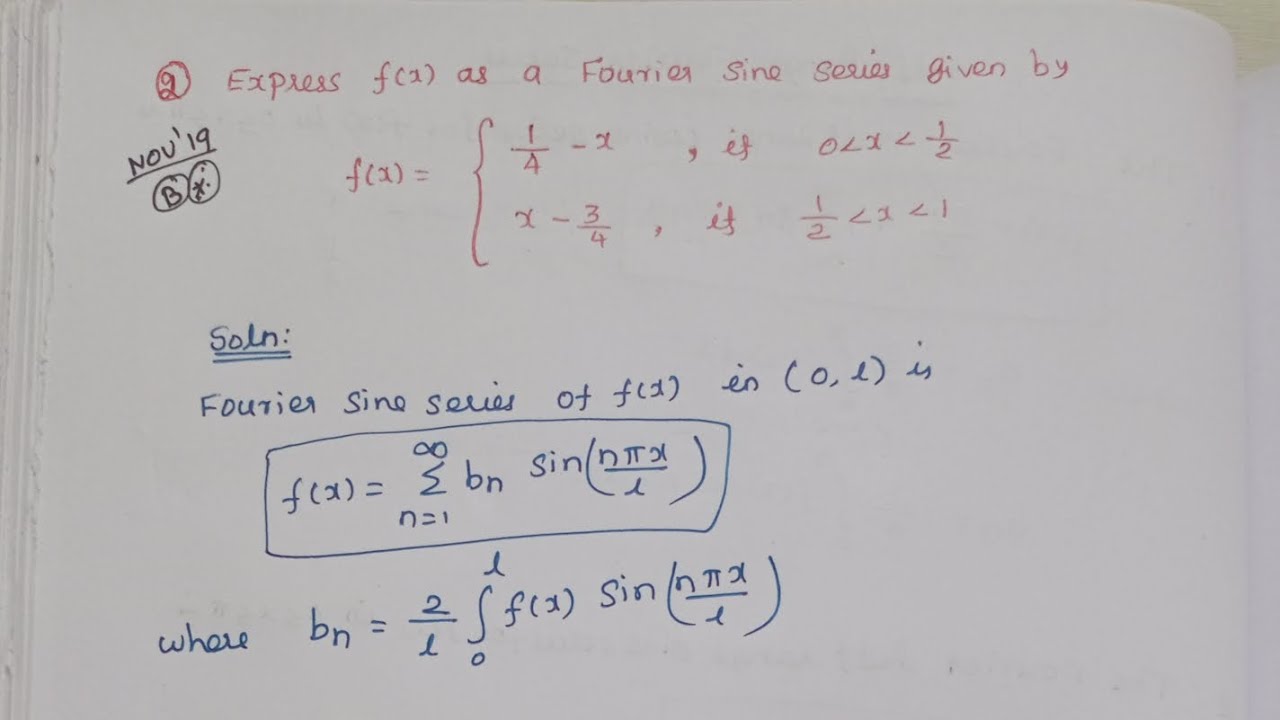 ② Express f(x) as a Fourier Sine series given by
NOV'19
B *
f(x) = { 1/4 - x , if 0<x<1/2
x - 3/4 , if 1/2 <x<1
Soln:
Fourier Sine series of f(x) in (0, l) is
f(x) = ∞ Σ n=1 bn sin(nπx/l)
where bn = 2/l ∫ 0 l f(x) sin(nπx/l)